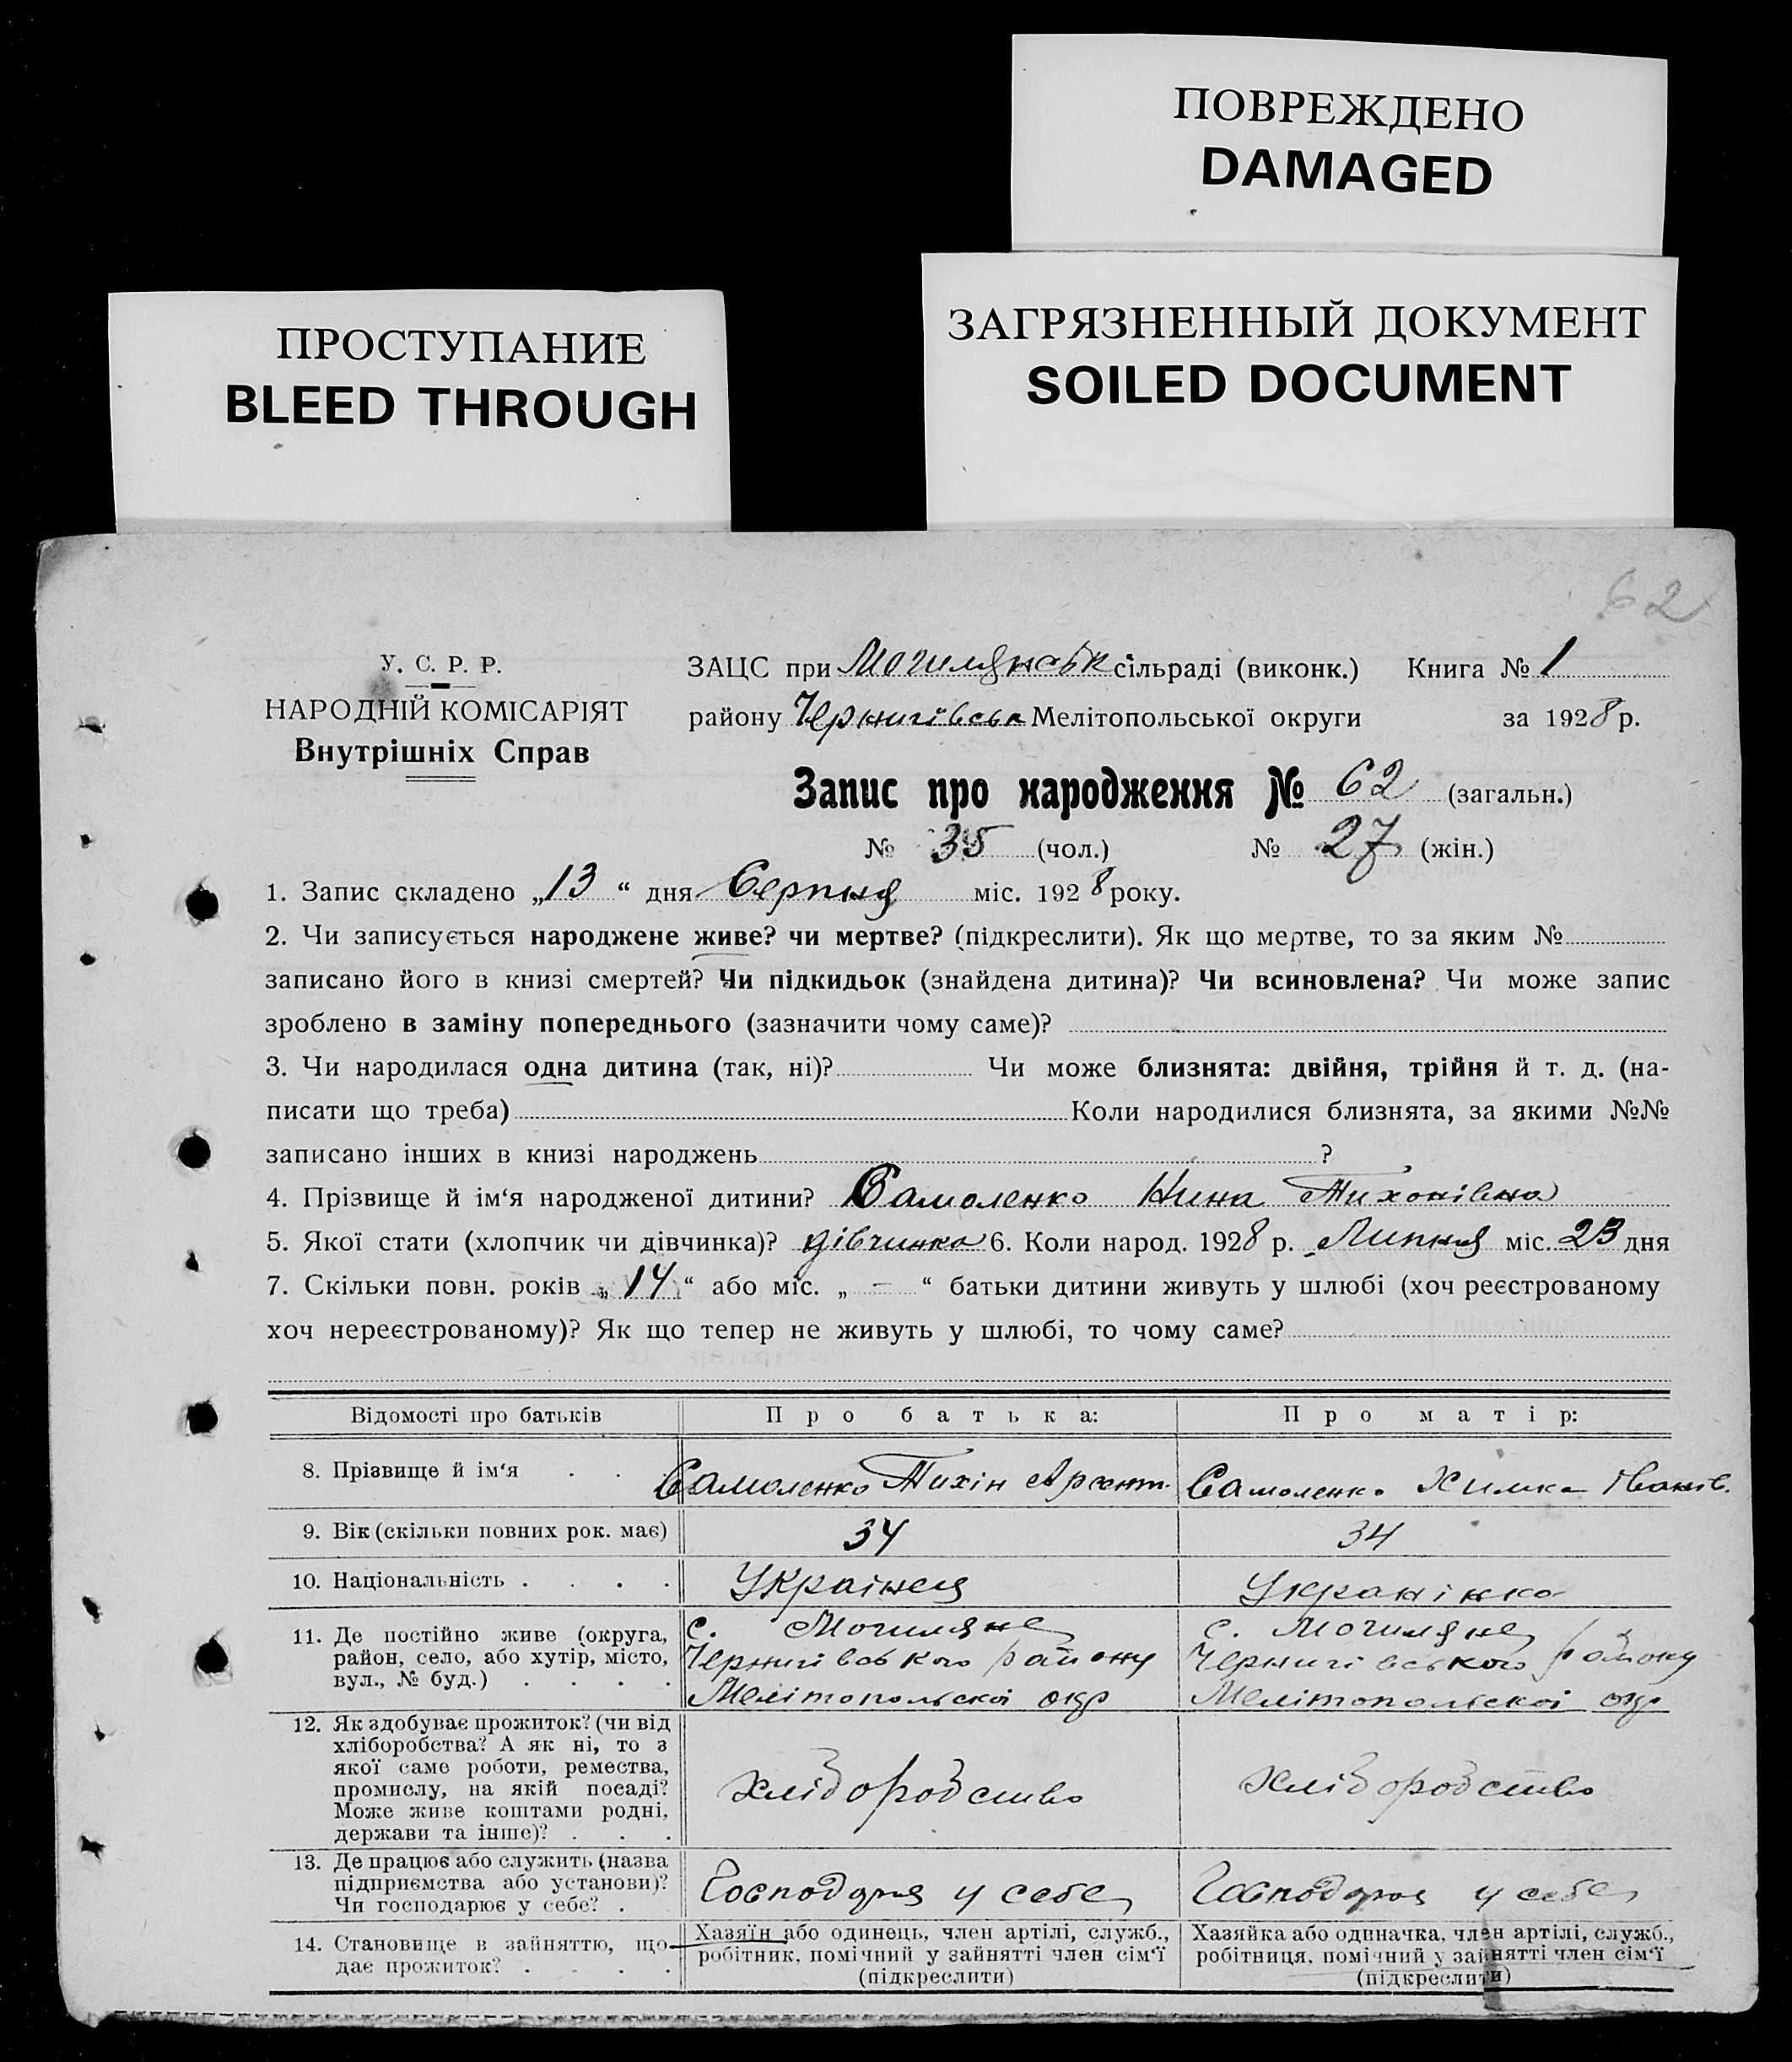 ПОВРЕЖДЕНО
DAMAGED
ПРОСТУПАНИЕ
BLEED THROUGH
ЗАГРЯЗНЕННЫЙ ДОКУМЕНТ
SOILED DOCUMENT
62
У. С. Р. Р.
НАРОДНІЙ КОМІСАРІЯТ
Внутрішніх Справ
ЗАЦС при Могилянськ сільраді (виконк.) Книга № 1
району Чернигівськ Мелітопольської округи за 1928 р.
Запис про народження № 62 (загальн.)
№ 35 (чол.) № 27 (жін.)
1. Запис складено „13“ дня Серпня міс. 1928 року.
2. Чи записується народжене живе? чи мертве? (підкреслити). Як що мертве, то за яким №
записано його в книзі смертей? Чи підкидьок (знайдена дитина)? Чи всиновлена? Чи може запис
зроблено в заміну попереднього (зазначити чому саме)?
3. Чи народилася одна дитина (так, ні)? Чи може близнята: двійня, трійня й т. д. (на-
писати що треба) Коли народилися близнята, за якими №№
записано інших в книзі народжень ?
4. Прізвище й ім‘я народженої дитини? Самоленко Нина Тихонівна
5. Якої стати (хлопчик чи дівчинка)? дівчинка 6. Коли народ. 1928 р. Липня міс. 23 дня
7. Скільки повн. років „14“ або міс. „ — “ батьки дитини живуть у шлюбі (хоч реєстрованому
хоч нереєстрованому)? Як що тепер не живуть у шлюбі, то чому саме?
Відомості про батьків Про батька: Про матір:
8. Прізвище й ім‘я . . Самоленко Тихін Арсент. Самоленко Химка Іванів.
9. Вік (скільки повних рок. має) 34 34
10. Національність . . . . Українец Українка
11. Де постійно живе (округа,
район, село, або хутір, місто,
вул., № буд.) . . . .
с. Могиляне
Чернигівського району
Мелітопольскоі окр
с. Могиляне
Чернигівського району
Мелітопольскоі окр
12. Як здобуває прожиток? (чи від
хліборобства? А як ні, то з
якої саме роботи, ремества,
промислу, на якій посаді?
Може живе коштами родні,
держави та інше)? . . .
хліборобство
хліборобство
13. Де працює або служить (назва
підприємства або установи)?
Чи господарює у себе? .
Господаря у себе
Господаря у себе
14. Становище в зайняттю, що
дає прожиток? . . . .
Хазяїн або одинець, член артілі, служб.,
робітник, помічний у зайнятті член сім‘ї
(підкреслити)
Хазяйка або одиначка, член артілі, служб.,
робітниця, помічний у зайнятті член сім‘ї
(підкреслити)